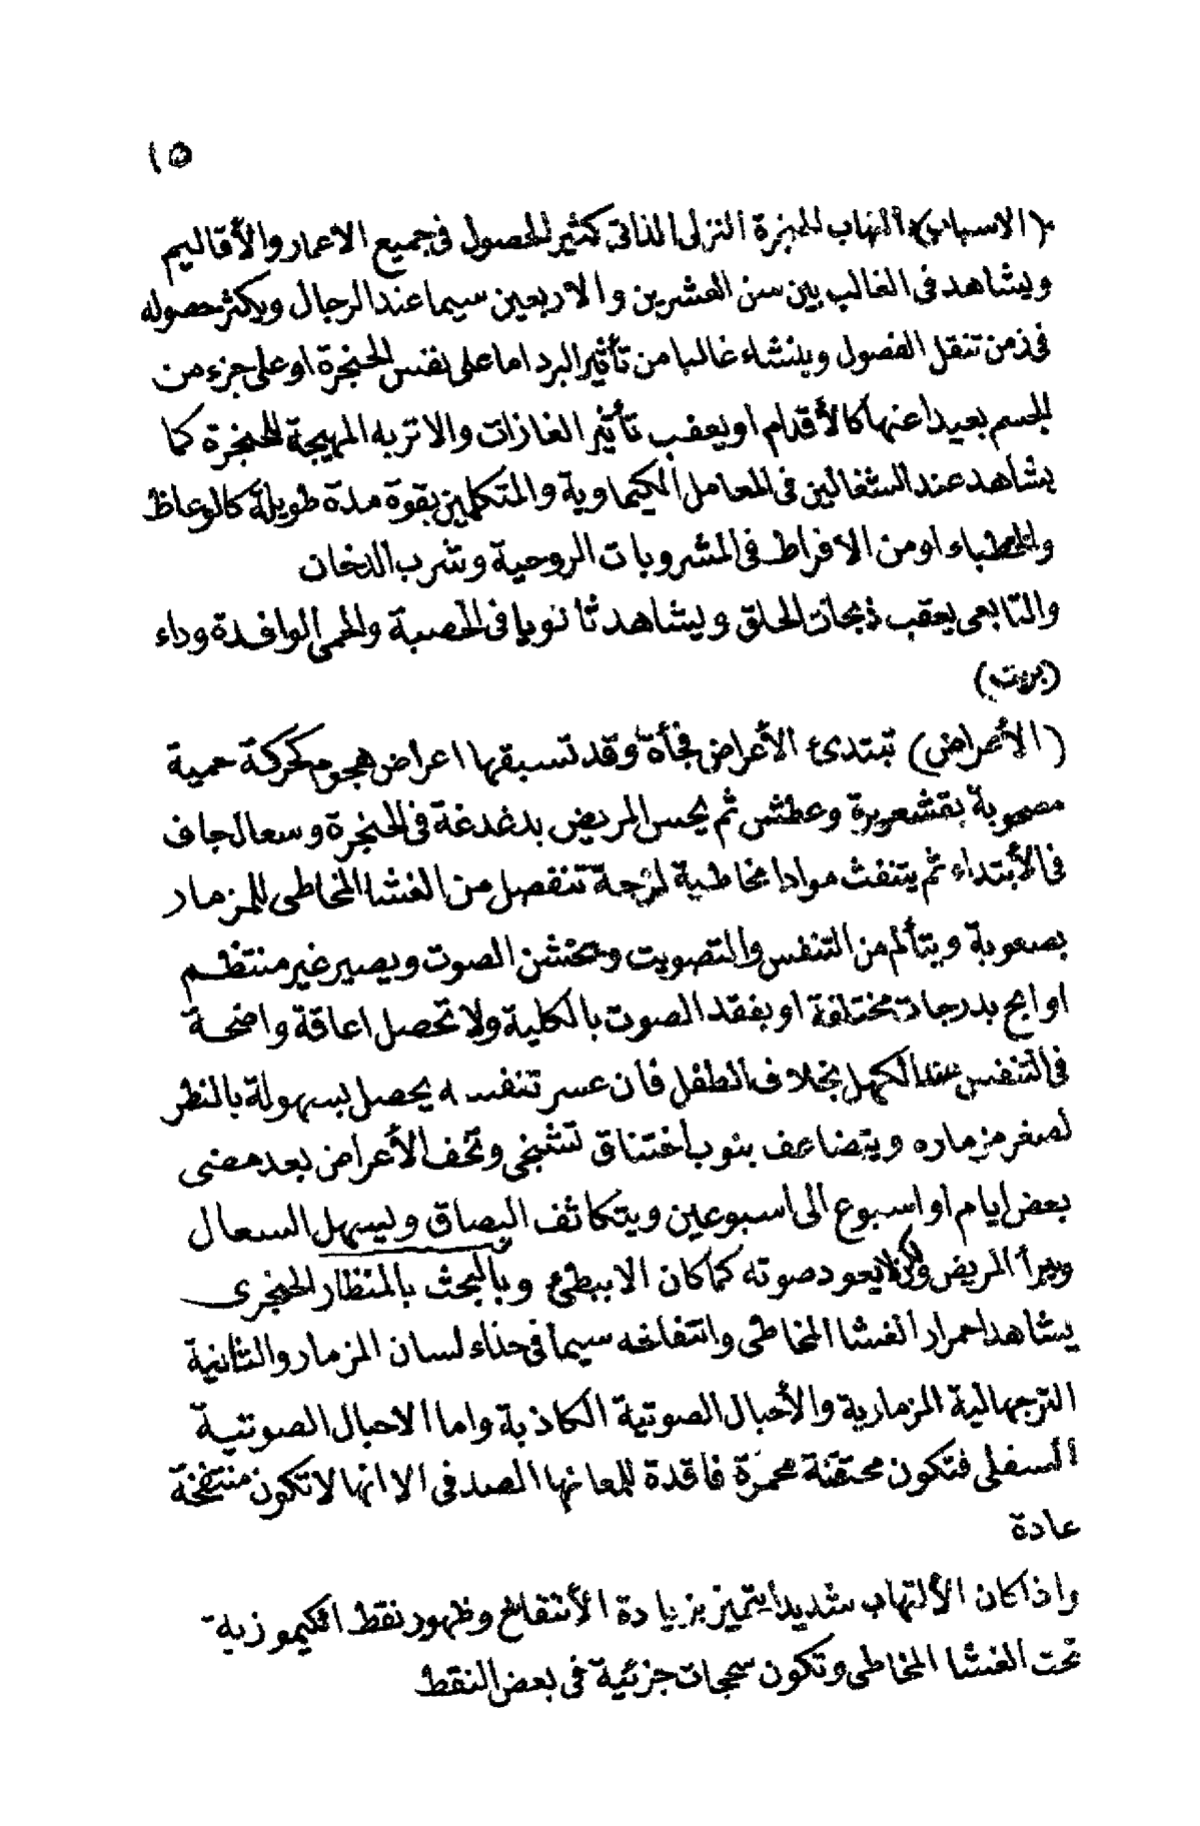 ١٥
(الاسباب) التهاب الحنجرة النزلى الذاتى كثير الحصول فى جميع الاعمار والأقاليم
ويشاهد فى الغالب بين سن العشرين والاربعين سيما عند الرجال ويكثر حصوله
فى زمن تنقل الفصول وينشاء غالبا من تأثير البرد اما على نفس الحنجرة او على جزء من
الجسم بعيدا عنها كالأقدام او يعقب تأثير الغازات والاتربه المهيجة للحنجرة كما
يشاهد عند الشغالين فى المعامل الكيماوية والمتكلمين بقوة مدة طويلة كالوعاظ
والخطباء او من الافراط فى المشروبات الروحية وشرب الدخان
والتابعى يعقب ذبحات الحلق ويشاهد ثانويا فى الحصبة والحمى الوافدة وداء
(بريت)
(الأعراض) تبتدئ الأعراض فجأة وقد تسبقها اعراض هجوم كحركة حمية
مصحوبة بقشعريرة وعطش ثم يحس المريض بدغدغة فى الحنجرة وسعال جاف
فى الأبتداء ثم يتنفث موادا مخاطية لزجة تنفصل من الغشا المخاطى للمزمار
بصعوبة ويتألم من التنفس والتصويت وتخشن الصوت ويصير غير منتظم
او ابح بدرجات مختلفة او يفقد الصوت بالكلية ولا تحصل اعاقة واضحة
فى التنفس عند الكهل بخلاف الطفل فان عسر تنفسه يحصل بسهولة بالنظر
لصغر مزماره ويتضاعف بنوب اختناق تشنجى وتخف الأعراض بعد مضى
بعض ايام او اسبوع الى اسبوعين ويتكاثف البصاق ويسهل السعال
ويبرأ المريض ولكن لا يعود صوته كما كان الا ببطئ وبالبحث بالمنظار الحنجرى
يشاهد احمرار الغشا المخاطى وانتفاخه سيما فى حذاء لسان المزمار والثانية
الترجهالية المزمارية والأحبال الصوتية الكاذبة واما الاحبال الصوتية
السفلى فتكون محتقنة محمرّة فاقدة للمعانها الصدفى الا انها لا تكون منتفخة
عادة
واذا كان الألتهاب شديدا يتميز بزيادة الأنتفاخ وظهور نقط اكيموزية
تحت الغشا المخاطى وتكون سحجات جزئية فى بعض النقط